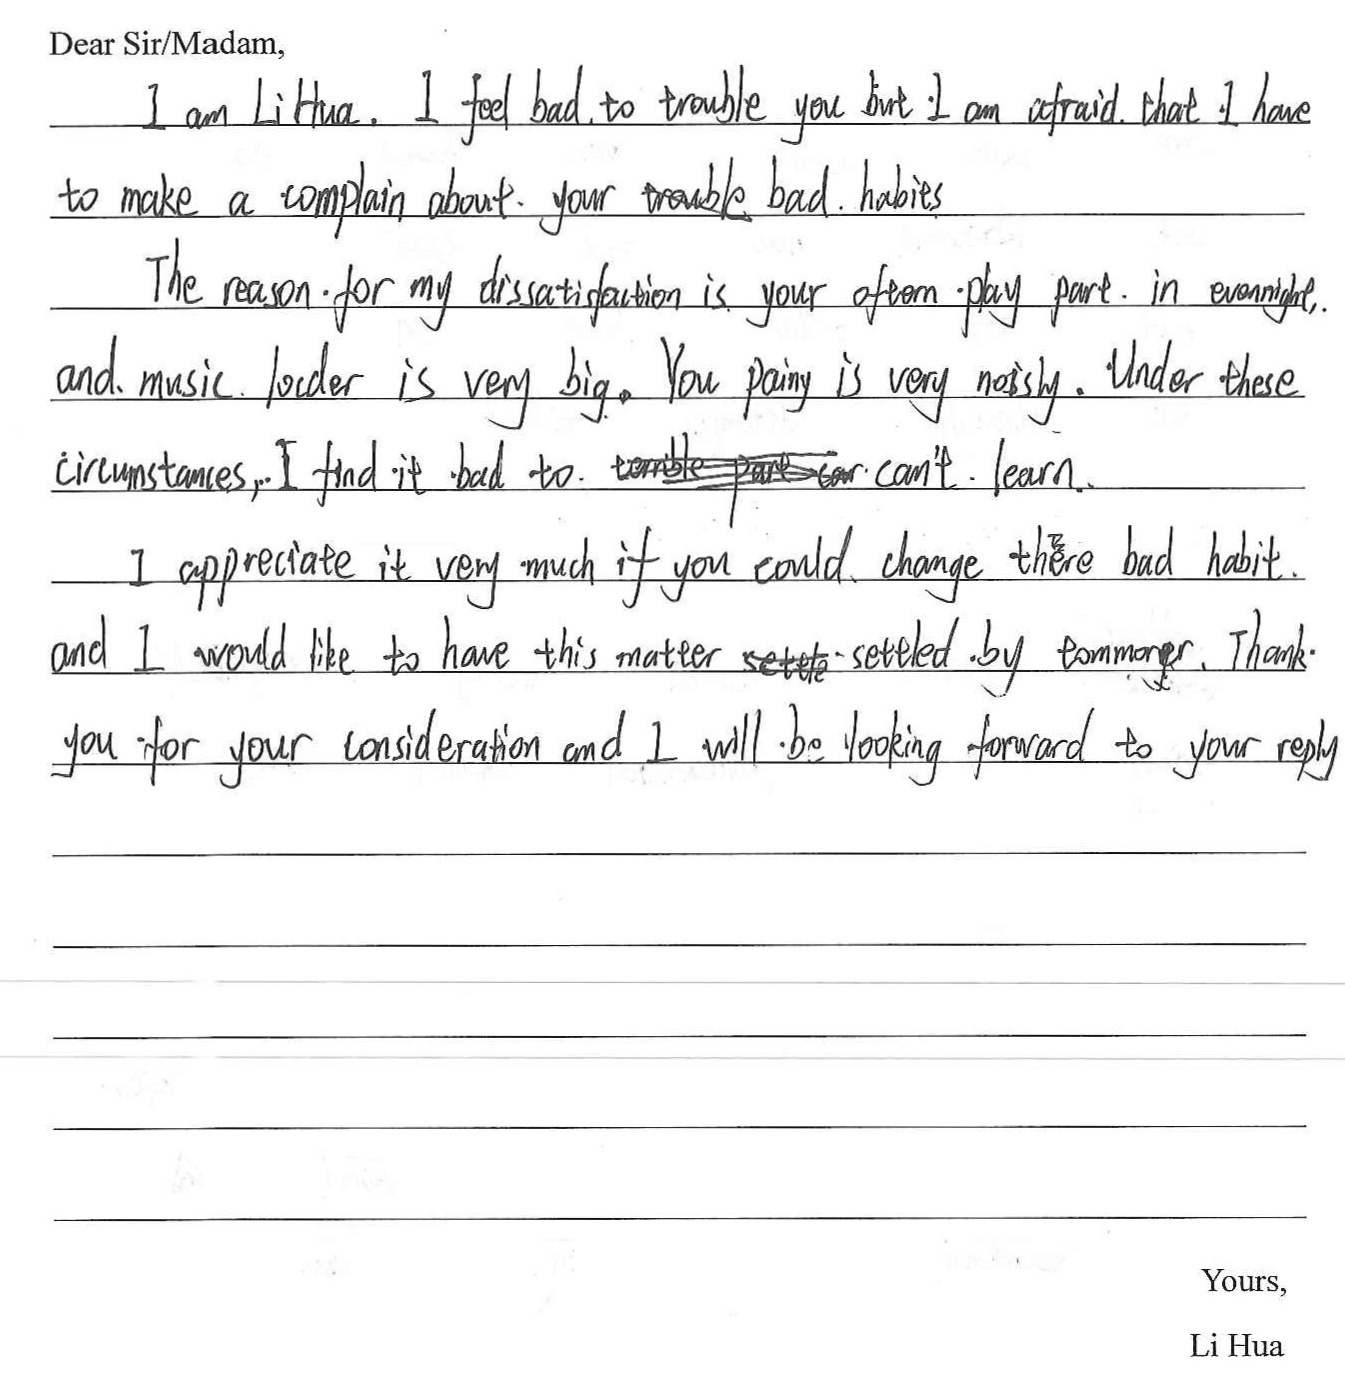 Dear Sir/Madam,
I am Li Hua. I feel bad to trouble you but I am afraid that I have
to make a complain about your bad habits
The reason for my dissatisfaction is your oftem play part in evennight,
and music louder is very big. You painy is very noisly. Under these
circumstances, I find it bad to can't learn.
I appreciate it very much if you could change these bad habit.
and I would like to have this matter settled by Thank
you for your consideration and I will be looking forward to your reply
Yours,
Li Hua